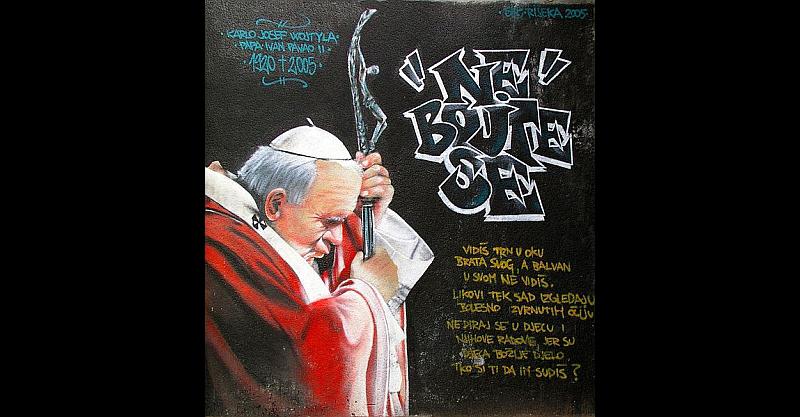 KARLO JOSEF WOJTYLA
PAPA IVAN PAVAO II
1920 † 2005
RIJEKA 2005
"NE
BOJTE
SE"
VIDIŠ TRN U OKU
BRATA SVOG, A BALVAN
U SVOM NE VIDIŠ.
LIKOVI TEK SAD IZGLEDAJU
BOLESNO ZVRNUTIH OČIJU
NE DIRAJ SE U DJECU I
NJIHOVE RADOVE, JER SU
DJECA BOŽIJE DJELO,
TKO SI TI DA IH SUDIŠ?